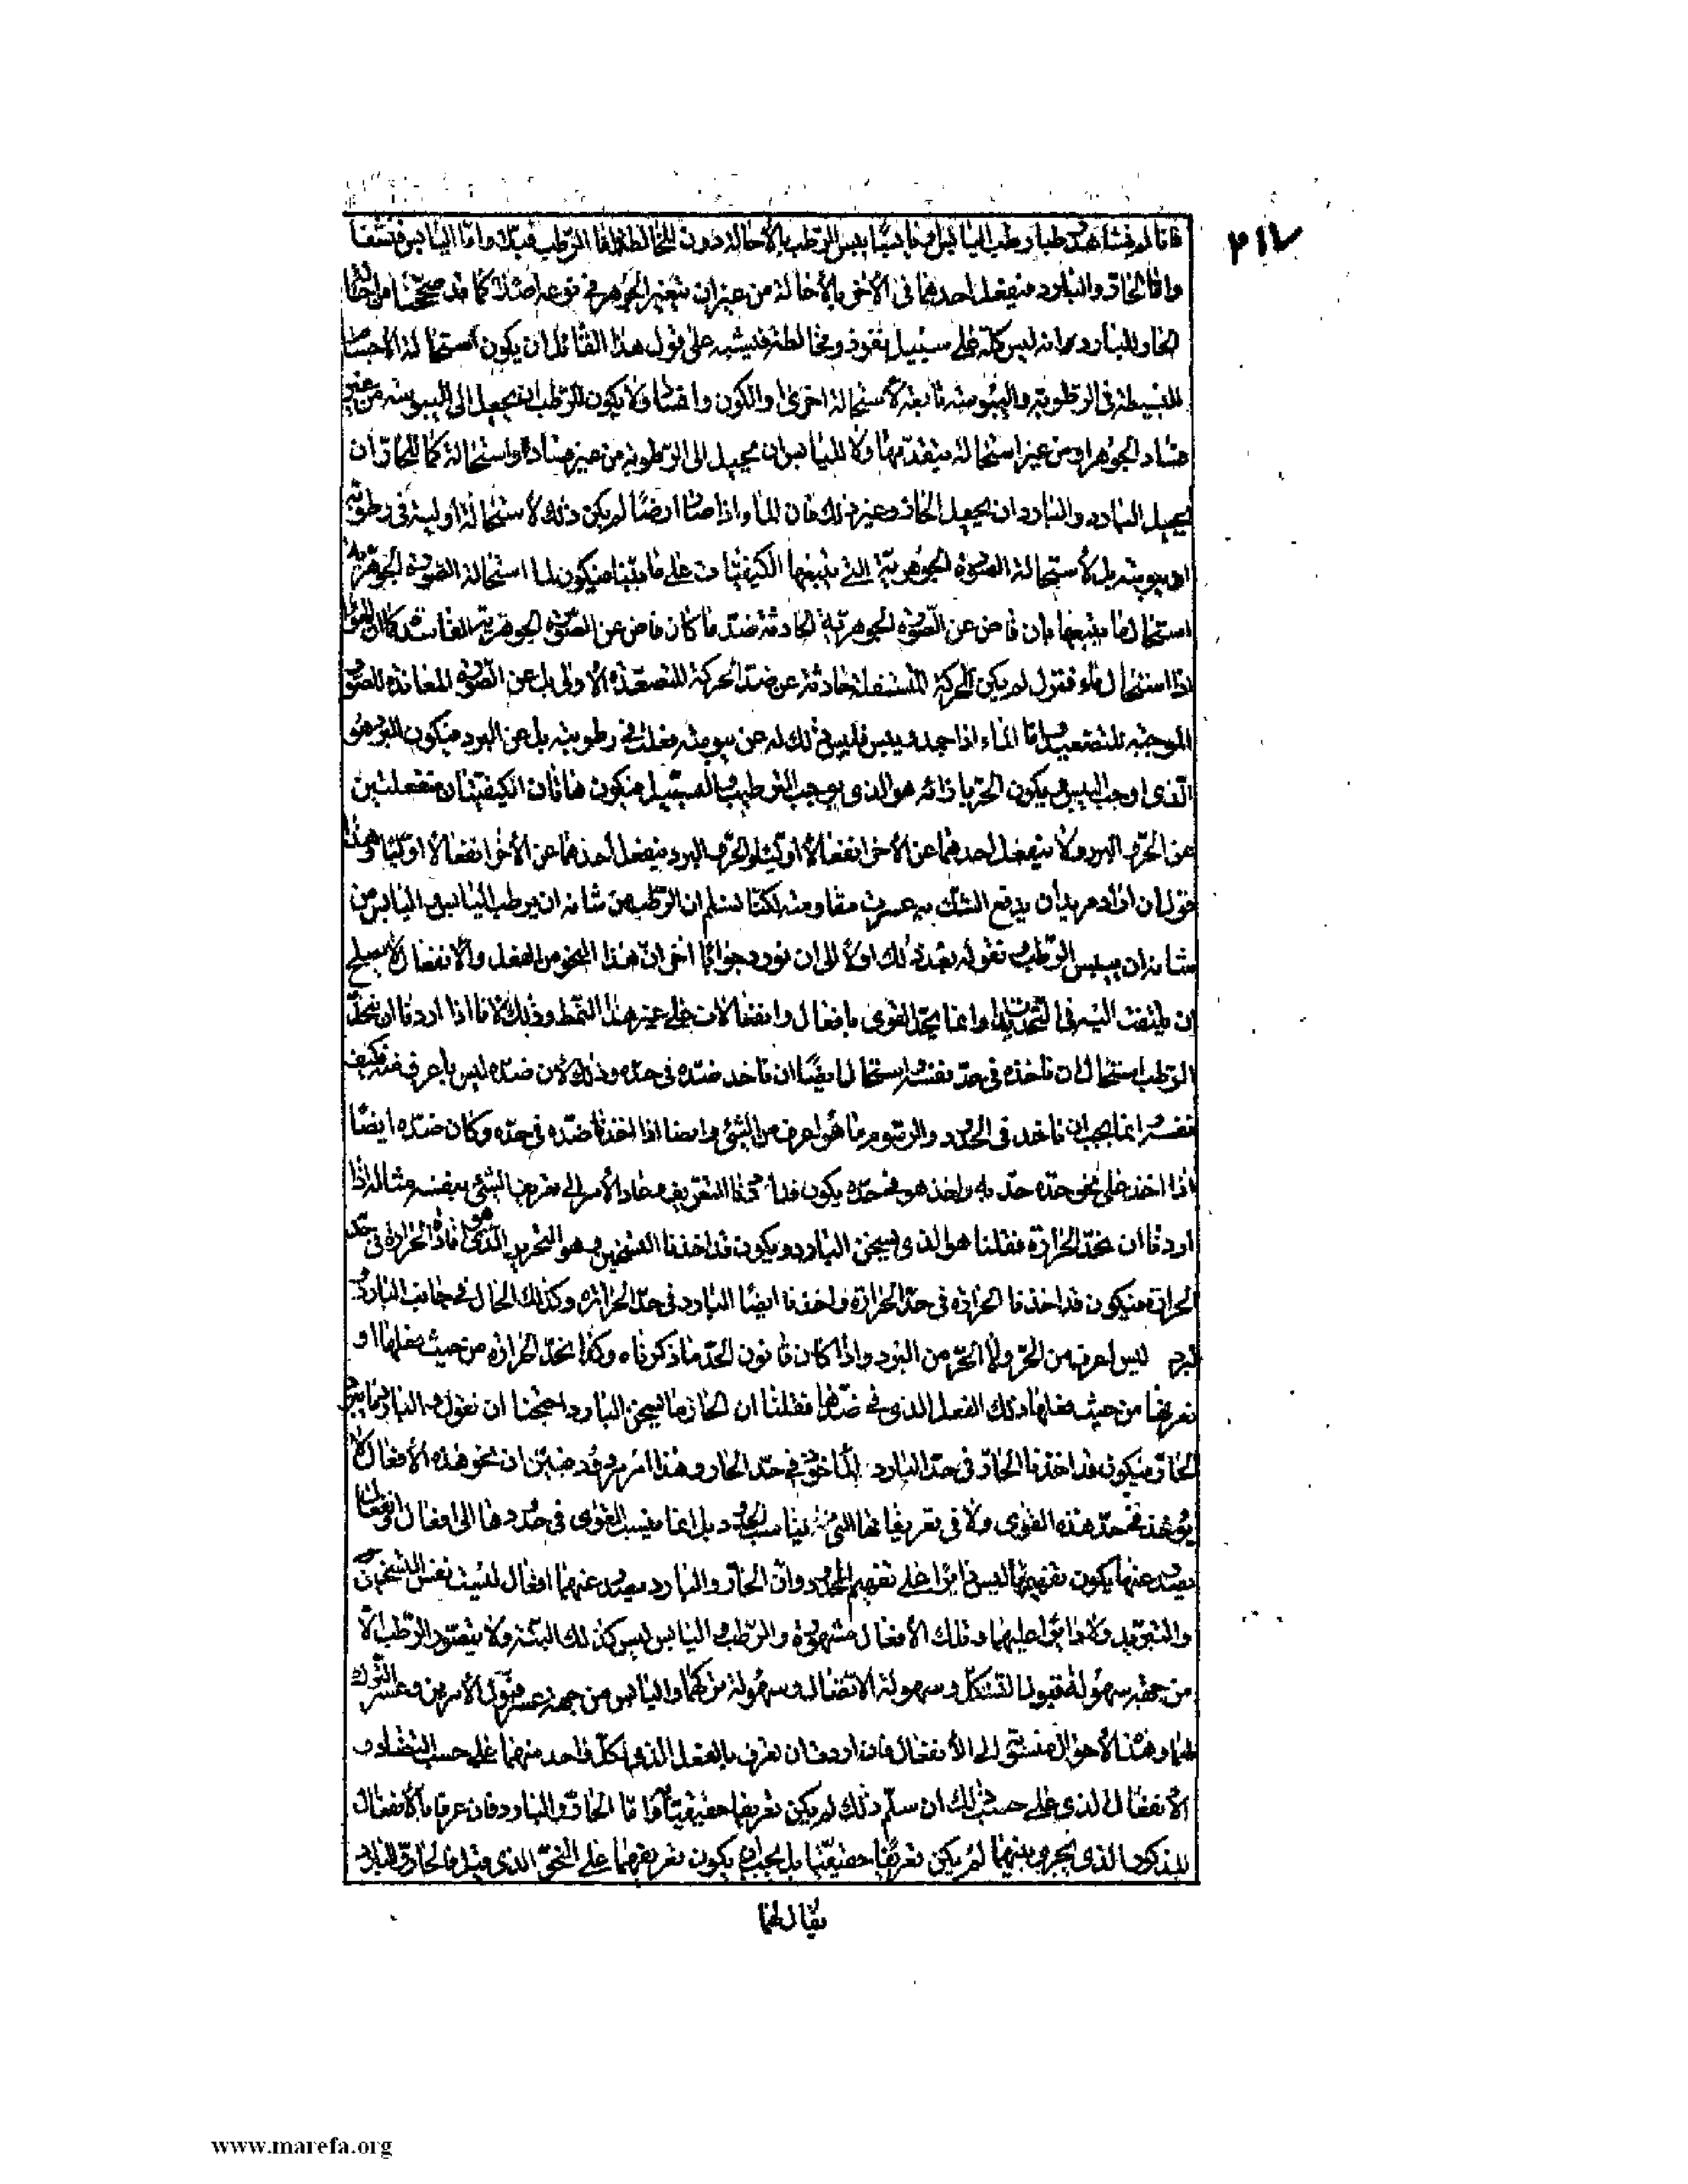 ٢١٧
فانا لم نشاهد رطبا رطب اليابس ولا يابسا يبس الرطب بالاحالة دون المخالطة اما الرطب فببلة واما اليابس فبنشف
واما الحار والبارد فينفعل احدهما فى الاخر بالاحالة من غير ان يتغير الجوهر فى نوعه كما قد صححنا من
الحار للبارد وانه ليس كله على سبيل نفوذ ومخالطة فيشبه على قول هذا القائل ان يكون استحالة الاجسام
البسيطة فى الرطوبة واليبوسة تابعة لاستحالة اخرى او الكون والفساد ولا يكون للرطب ان يحيل الى اليبوسة من غير
فساد الجوهر او من غير استحالة متقدمة ولا لليابس ان يحيل الى الرطوبة من غير فساد او استحالة كما للحار ان
يحيل البارد والبارد ان يحيل الحار وغير ذلك فان الماء اذا صار ارضا لم يكن ذلك لاستحالة اولية فى رطوبة
او يبوسة بل لاستحالة الصورة الجوهرية التى يتبعها الكيفيات على ما بينا فيكون لما استحالة الصورة الجوهرية
استحال ما يتبعها بان فاض عن الصورة الجوهرية الحادثة ضد ما كان فاض عن الصورة الجوهرية الفاسدة كما ان الهواء
اذا استحال ماء فنزل لم يكن الحركة المتسفلة حادثة عن ضد الحركة المتصعدة الاولى بل عن الصورة المعاندة للصورة
الموجبة للتصعيد واما الماء اذا جمد ويبس فليس ذلك له عن يبوسة فعلت فى رطوبته بل عن البرد فيكون البرد هو
الذى اوجب اليبس ويكون الحر بازائه هو الذى يوجب الترطيب والتسييل فيكون هاتان الكيفيتان منفعلتين
عن الحر والبرد ولا ينفعل احدهما عن الاخر انفعالا اوليا والحر والبرد ينفعل احدهما عن الاخر انفعالا اوليا وهذا
قول ان اراد مريد ان يدفع الشك به عسرت مقاومته لكنا نسلم ان الرطب من شانه ان يرطب اليابس واليابس من
شانه ان ييبس الرطب نقول بعد ذلك اولا الى ان نورد جوابا اخر ان هذا النحو من الفعل والانفعال لا يصلح
ان يلتفت اليه فى التحديد وانما يحد القوى بافعال وانفعالات على غير هذا النمط وذلك لانا اذا اردنا ان نحد
الرطب استحال ان ناخذه فى حد نفسه واستحال ايضا ان ناخذ ضده فى حده وذلك لان ضده ليس باعرف منه فكيف
نفسه انما يجب ان ناخذ فى الحدود والرسوم ما هو اعرف من الشئ وايضا اذا اخذنا ضده فى حده وكان ضده ايضا
اذا اخذ على نحو حده حد به واخذ هو فى حده يكون التعريف معاد الامر الى تعريف الشئ بنفسه مثاله اذا
اردنا ان نحد الحرارة فقلنا هو الذى يسخن البارد ويكون قد اخذنا التسخين وهو التحرير الذى هو افادة الحرارة فى حد
الحرارة فيكون قد اخذنا الحرارة فى حد الحرارة واخذنا ايضا البارد فى حد الحرارة وكذلك الحال فى جانب البارد
البرد ليس اعرف من الحر ولا الحر من البرد واذا كان قانون الحد ما ذكرناه وكنا نحد الحرارة من حيث فعلها او
نعرفها من حيث فعلها ذلك الفعل الذى فى ضدها فقلنا ان الحار ما يسخن البارد احتجنا ان نقول والبارد ما يبرد
الحار فيكون قد اخذنا الحار فى حد البارد الماخوذ فى حد الحار وهذا امر مردود فبين ان نحو هذه الافعال لا
يؤخذ فى حد هذه القوى ولا فى تعريفاتها التى تناسب الحدود بل انما ينسب القوى فى حدودها الى افعال وانفعالات
يصدر عنها يكون تفهيمها ليس دايرا على تفهم المحدود وان الحار والبارد يصدر عنهما افعال ليست نفس التسخين
والتبريد ولا دايرا عليهما وتلك الافعال مشهورة والرطب واليابس ليس كذلك البتة ولا يتصور الرطب الا
من جهة سهولة قبول التشكل وسهولة الاتصال وسهولة تركهما واليابس من جهة عسر قبول الامرين وعسر الترك
لهما وهذه الاحوال منسوبة الى الانفعال فان اردنا ان نعرف بالفعل الذى لكل واحد منهما على حسب التضاد و
الانفعال الذى على حسب ذلك ان سلم ذلك لم يكن تعريفا حقيقيا واما الحار والبارد فان عرفا بالانفعال
المذكور الذى يجرى بينهما لم يكن تعريفا حقيقيا بل يجب ان يكون تعريفهما على النحو الذى قيل فالحار والبارد
يقال لهما
www.marefa.org